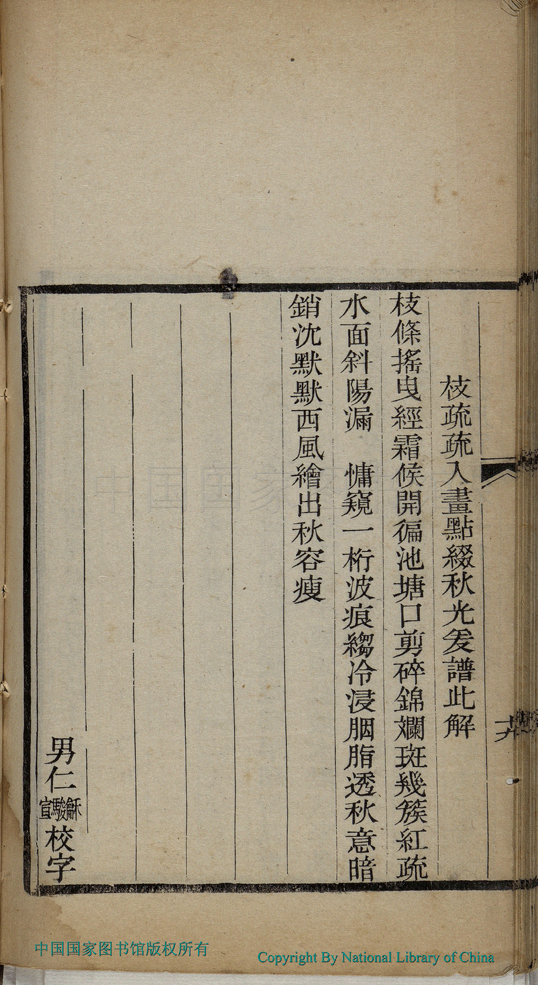 枝疏疏入畫點綴秋光爰譜此解
枝條搖曳經霜候開徧池塘口剪碎錦斕斑幾簇紅疏
水面斜陽漏　慵窺一桁波痕縐冷浸胭脂透秋意暗
銷沈默默西風繪出秋容瘦
男仁龢駿宣校字
中国国家图书馆版权所有
Copyright By National Library of China